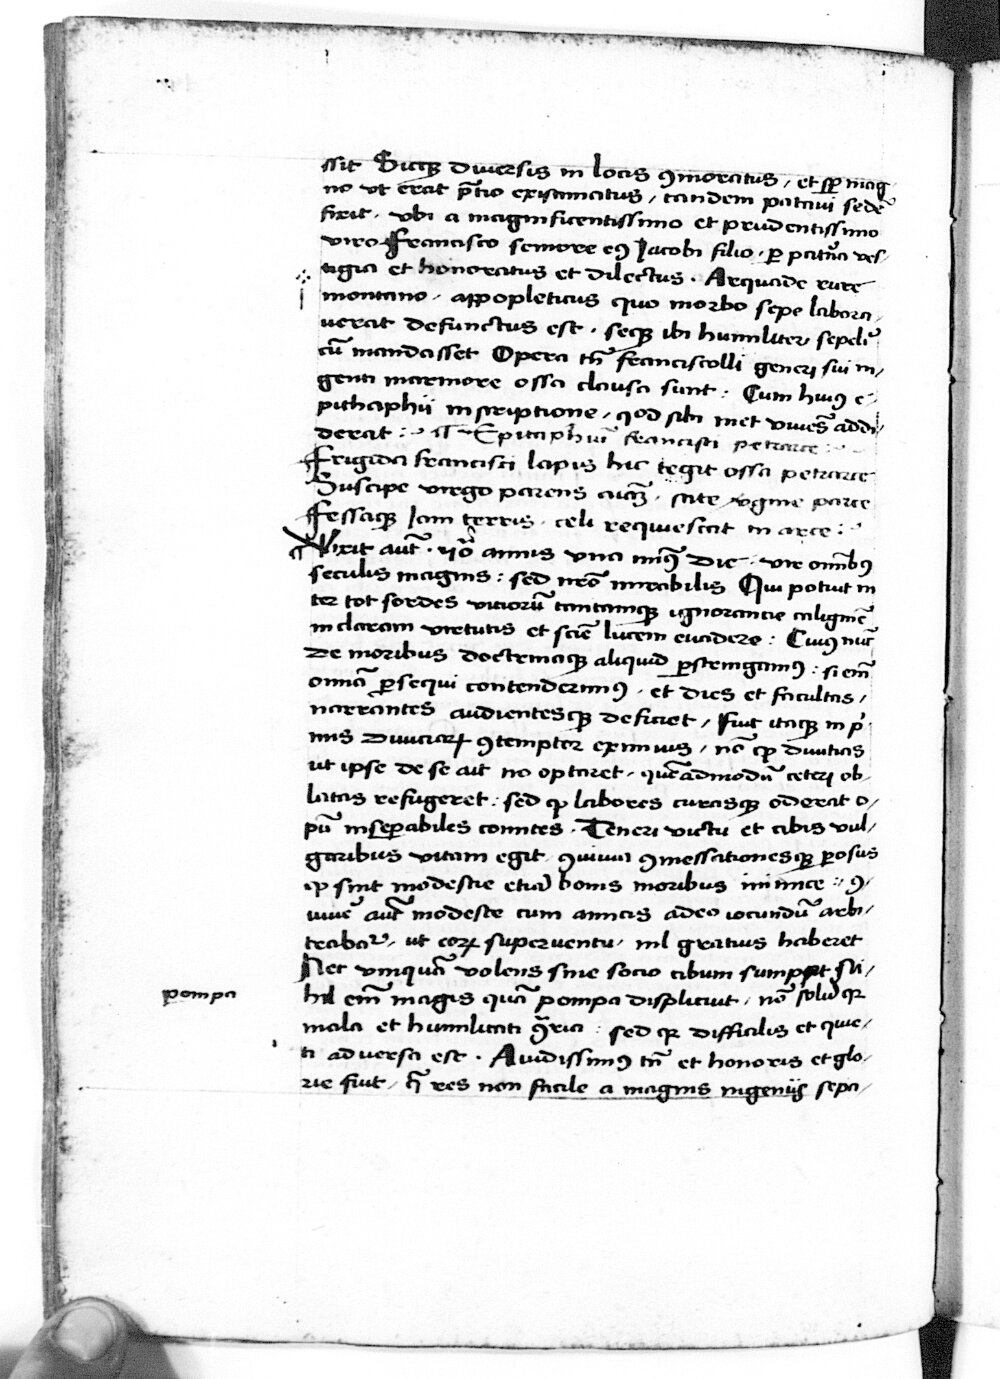 ssit Sicqꝫ diuersis in locis ꝯmoratus / et sp̄ mag
no vt erat p̄tio existimatus / tandem pataui sedē
fixit · vbi a magnificentissimo et prudentissimo
viro Francisco seniore eiꝰ Jacobi filio · ꝑ patͥna ves
tigia et honoratus et dilectus · Arquade rure
montano · appopleticus quo morbo sepe labora /
uerat defunctus est · seqꝫ ibi humiliter sepeliri
cū mandasset Opera tn̄ franciscolli generi sui in /
genti marmore ossa clausa sunt : Cum huiꝰ e
pithaphii inscriptione / qod sibi met viuēs addi
derat : Epitaphiū francisci petrarce :
Frigida francisci lapis hic tegit ossa petrarce
Suscipe virgo parens aīaꝫ · sate vgine parce
Fessaqꝫ Jam terris · celi requiescat in arce :
Vixit aūt · 70 annis vna minꝰ die · vir omībꝰ
seculis magnis : sed nr̄o mirabilis Qui potuit in
ter tot sordes vitiorū tantamqꝫ ignorancie caliginē
in claram virtutis et sciē lucem euadere : Cuiꝰ nūc
De moribus doctrinaqꝫ aliquid ꝑstringamꝰ : si em̄
omnia ꝑsequi contenderimꝰ · et dies et facultas /
narrantes audientesqꝫ deficiet / Fuit itaqꝫ in p
mis diuiciaꝝ ꝯtemptor eximius / nō qꝫ diuitias
ut ipse de se ait no optaret / quēadmodū ceteri ob
latas refugeret : sed qꝫ labores curasqꝫ oderat o /
pū inseꝑabiles comites · Teneri victu et cibis vul /
garibus vitam egit · ꝯuiuia ꝯmessationesqꝫ ꝑosus
qꝫ sint modestie etiā bonis moribus inimice : ꝯ
uiuē aūt modeste cum amicis adeo iocundū arbi /
trabat᷑ / ut eoꝝ superuentu / nil gratius haberet
Net vnquā volens sine socio cibum sumpsit Ni /
pompa
hil em̄ magis quā pompa displicuit / nō solū qꝫ
mala et humilitati ꝯria : sed qꝫ difficilis et quie /
ti aduersa est · Auidissimꝰ tn̄ et honoris et glo /
rie fuit / h̄ res non facile a magnis ingeniis sepa /